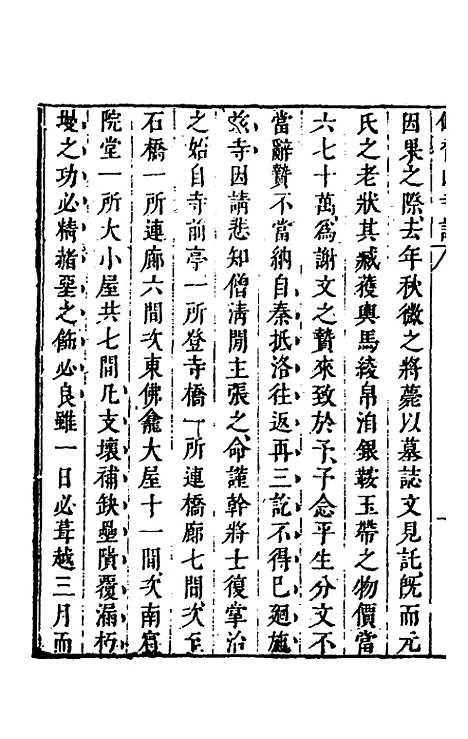 修香山寺記
因果之際去年秋微之將薨以墓誌文見託旣而元
氏之老狀其臧獲輿馬綾帛洎銀鞍玉帶之物價當
六七十萬爲謝文之贄來致於予予念平生分文不
當辭贄不當納自秦抵洛往返再三訖不得已廻施
兹寺因請悲知僧淸閒主張之命謹幹將士復掌治
之始自寺前亭一所登寺橋一所連橋廊七間次至
石橋一所連廊六間次東佛龕大屋十一間次南賓
院堂一所大小屋共七間凡支壞補缺壘隤覆漏杇
墁之功必精赭堊之飾必良雖一日必葺越三月而